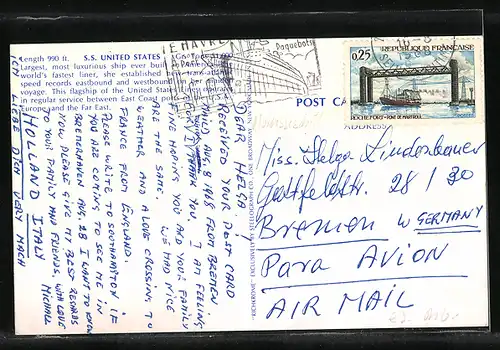 Length 990 ft. S.S. UNITED STATES
Largest, most luxurious ship ever built
world's fastest liner, she established new trans-atlantic
speed records eastbound and westbound on her
voyage. This flagship of the United States Lines
in regular service between East Coast ports
Europe and the Far East.
LE HAVRE
Paquebots
18-8
REPUBLIQUE FRANÇAISE
0,25
ROCHEFORT-PONT DE MARTROU
POST CA
ADDRESS
DEAR HELGA.
RECEIVED YOUR POST CARD
AUG. 8 1968 FROM BREMEN
THANK YOU. I AM FEELING
HOPING YOU AND YOUR FAMILY
ARE THE SAME. WE HAD NICE
WEATHER AND A LOVE CROSSING, TO
FRANCE FROM ENGLAND.
PLEASE WRITE TO SOUTHAMPTON IF
YOU ARE COMING TO SEE ME IN
BREMERHAVEN AUG. 28 I WANT TO KNOW
NOW PLEASE GIVE MY BEST REGARDS
TO YOUR FAMILY AND FRIENDS. WITH LOVE
HOLLAND ITALY MICHALL
ICH LIEBE DICH VERY MACH
Miss. Helga Lindenbauer
28 / 30
Bremen W GERMANY
Para AVION
AIR MAIL